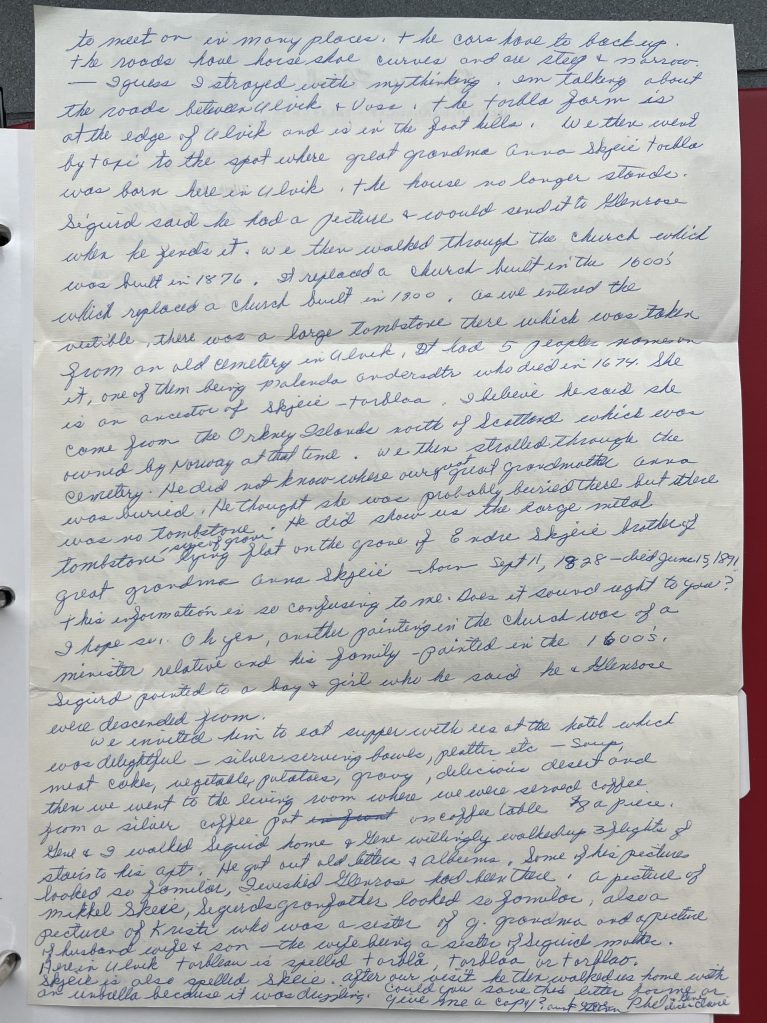 to meet on in many places. + the cars have to back up.
the roads have horse shoe curves and are steep & narrow.
— I guess I strayed with my thinking. Im talking about
the roads between Ulvik & Voss. The Torbla farm is
at the edge of Ulvik and is in the foot hills. We then went
by taxi to the spot where great grandma Anna Skjeie Torbla
was born here in Ulvik. The house no longer stands.
Sigurd said he had a picture & would send it to Glenrose
when he finds it. We then walked through the church which
was built in 1876. It replaced a church built in the 1600's
which replaced a church built in 1300. As we entered the
vestible, there was a large tombstone there which was taken
from an old cemetery in Ulvik. It had 5 peoples names on
it, one of them being Malenda Andersdtr who died in 1674. She
is an ancestor of Skjeie – Torblaa. I believe he said she
came from the Orkney Islands north of Scotland which was
owned by Norway at that time. We then strolled through the
cemetery. He did not know where our great great grandmother Anna
was buried. He thought she was probably buried there but there
was no tombstone. He did show us the large metal
tombstone size of grave lying flat on the grave of Endre Skjeie brother of
great grandma Anna Skjeie – born Sept 11, 1828 – died June 15, 1891
This information is so confusing to me. Does it sound right to you?
I hope so. Oh yes, another painting in the church was of a
minister relative and his family – painted in the 1600's.
Sigurd pointed to a boy & girl who he said he & Glenrose
were descended from.
We invited him to eat supper with us at the hotel which
was delightful – silver serving bowls, platter etc – Soup,
meat cakes, vegetable, potatoes, gravy, delicious desert and
then we went to the living room where we were served coffee
from a silver coffee pot in front on coffee table $8 a piece.
Gene & I walked Sigurd home & Gene willingly walked up 3 flights of
stairs to his apt. He got out old letters & albums. Some of his pictures
looked so familar, I wished Glenrose had been there. A picture of
Mikkel Skeie, Sigurds grandfather looked so familar, also a
picture of Kristi who was a sister of g. grandma and a picture
of husband wife & son – the wife being a sister of Sigurd mother.
Here in Ulvik Torbleau is spelled Torblå, Torblåa or Torblao.
Skjeie is also spelled Skeie. After our visit he then walked us home with
an unbrella because it was drizzling. Could you save this letter for me or
give me a copy?